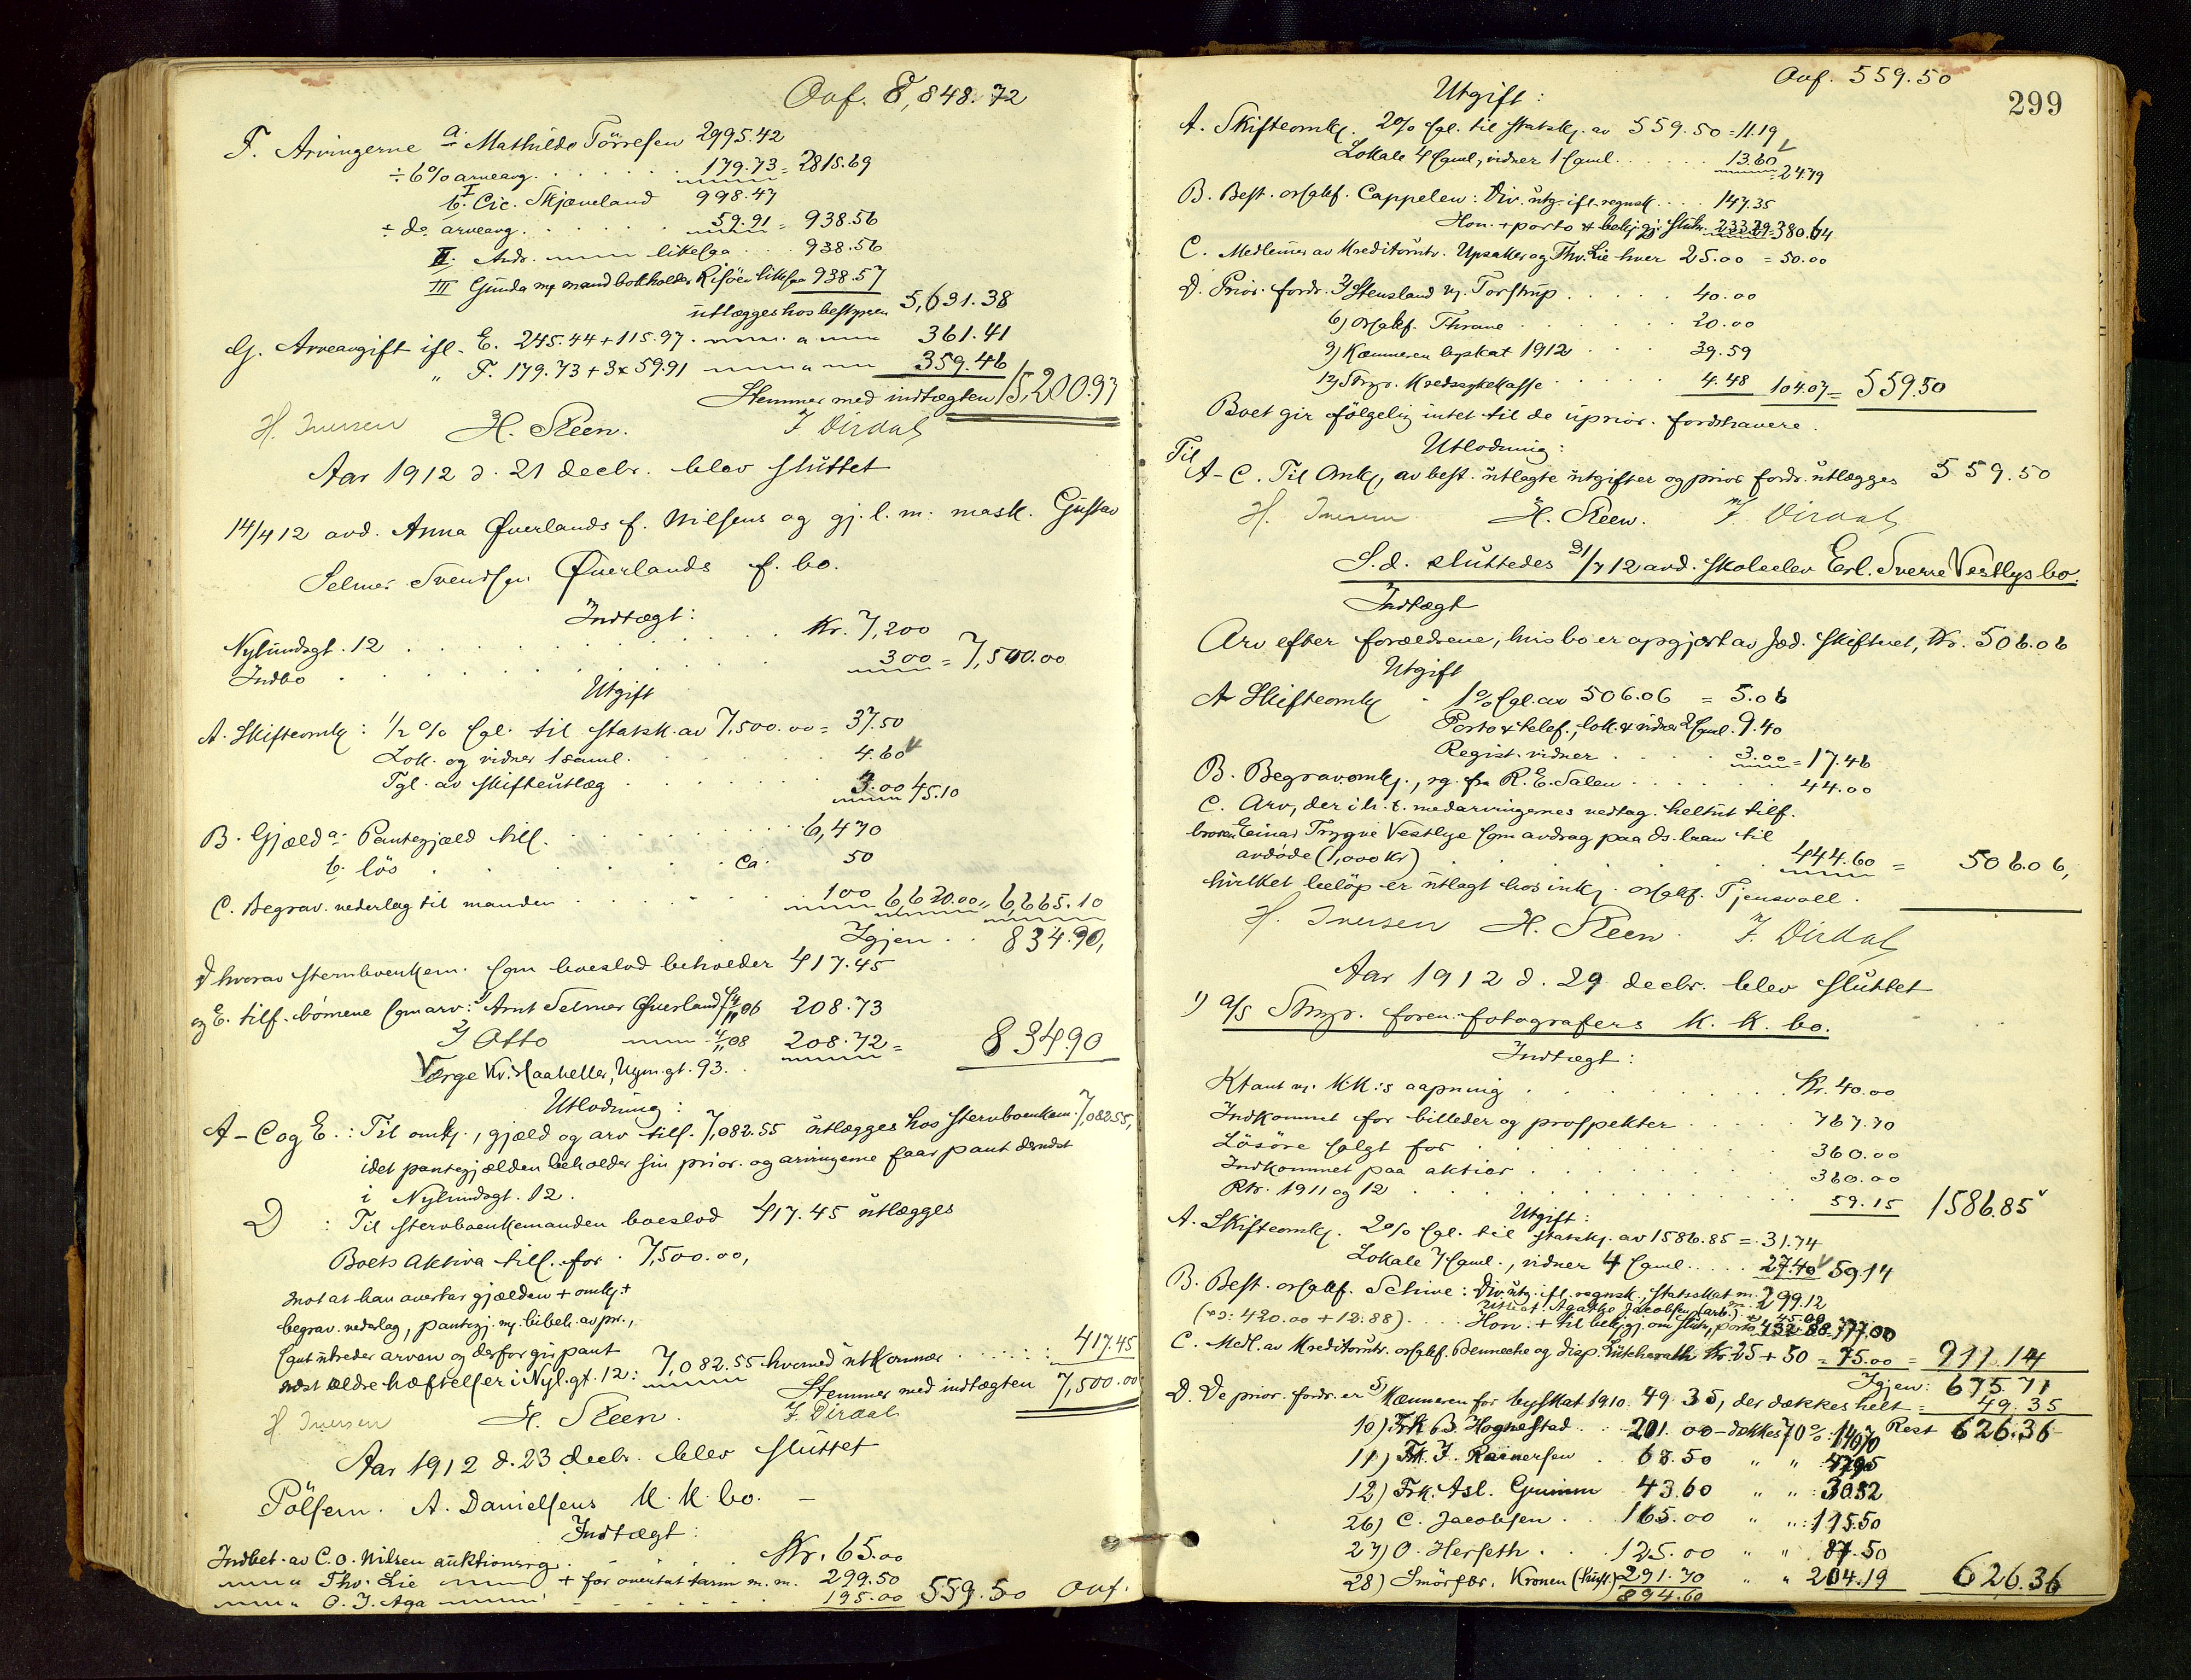 Ovf. 8,848.72
F. Arvingerne a. Mathilde Törresen 2995.42
÷ 6% arveavg. 179.73 = 2815.69
b. I Cic. Skjæveland 998.47
÷ do arveavg. 59.91 = 938.56
II. Andr. likesaa 938.56
III Gunda m/ mand bokholder Risöen likesaa 938.57
utlægges hos bestyreren 5,631.38
G. Arveavgift ifl. E. 245.44 + 115.97 361.41
" F. 179.73 + 3 x 59.91 359.46
Stemmer med indtægten 15,200.97
H. Iversen H. Steen. J. Dirdal
Aar 1912 d. 21 decbr. blev sluttet
14/4 12 avd. Anna Øverlands f. Nilsens og gj. l. m. mask. Gustav
Selmer Svendsen Øverlands f. bo.
Indtægt:
Nylundsgt. 12 Kr. 7,200
Indbo 300 = 7,500.00
Utgift
A. Skifteomk: 1/2 % sgl. til statsk. av 7,500.00 = 37.50
Lok. og vidner 1 saml. 4.60
Tgl. av skifteutlæg 3.00 45.10
B. Gjæld a. Pantegjæld till. 6,470
b. lös ca. 50
C. Begrav. vederlag til manden 100 6,620.00 = 6,665.10
Igjen 834.90,
D hvorav stervboenkem. som boeslod beholder 417.45
og E. tilf. börnene som arv: 1) Arnt Selmer Øverland 208.73
2) Otto 4/11 08 208.72 =
834.90
Værge Kv. Haaheller, Nym.gt. 93.
Utlodning:
A-C og E.: Til omk., gjæld og arv tils. 7,082.55 utlægges hos stervboenkem. 7,082.55,
idet pantegjælden beholder sin prior. og arvingerne faar pant dernæst
i Nylundsgt. 12.
D : Til stervboenkemanden boeslod 417.45 utlægges
Boets aktiva till. for 7,500.00,
mot at han overtar gjælden + omk. +
begrav. vederlag, pantegj. m/ bibeh. av pr.,
samt utreder arven og derfor gir pant
næst ældre hæftelser i Nyl.gt. 12: 7,082.55 hvorved utkommer 417.45
Stemmer med indtægten 7,500.00
H. Iversen H. Steen. J. Dirdal
Aar 1912 d. 23 decbr. blev sluttet
Pölsem. A. Danielsens K. K. bo. –
Indtægt:
Indbet. av C. O. Nilsen auktionsrg. Kr. 65.00
" Thv. Lie + for overtat tarm m. m. 299.50
" O. J. Aga 195.00 559.50 Ovf.
299
Ovf. 559.50
Utgift:
A. Skifteomk. 2% sgl. til statsk. av 559.50 = 11.19
Lokale 4 saml, vidner 1 saml. 13.60
= 24.79
B. Best. orsakf. Cappelen: Div. utg. ifl. regnsk. 147.35
Hon. + porto & bekj.gj. slutn. 233.29 = 380.64
C. Medlemmer av Kreditorutv. Upsaker og Thv. Lie hver 25.00 = 50.00
D. Prior. fordr. 3) Stensland v. Torstrup 40.00
6) Orsakf. Thrane 20.00
9) Kæmneren byskat 1912 39.59
12) Stvgr. Kredssykekasse 4.48 104.07 = 559.50
Boet gir fölgelig intet til de uprior. fordrhavere.
Utlodning:
Til
A-C. Til Omk, av best. utlagte utgifter og prior fordr. utlægges 559.50
H. Iversen H. Steen. J. Dirdal
S.d. sluttedes 31/7 12 avd. skoleelev Erl. Sverre Vestlys bo.
Indtægt
Arv efter forældrene, hvis bo er opgjort av Jæd. skifteret, Kr. 506.06
Utgift
A. Skifteomk. 1% sgl. av 506.06 = 5.06
Porto & telef., lok. & vidner 2 saml. 9.40
Regist. vidner 3.00 = 17.46
B. Begrav.omk., rg. fra R. E. Salen 44.00
C. Arv, der i h. t. medarvingernes vedtag. heltut tilf.
broren Einar Trygve Vestlye som avdrag paa ds. laan til
avdøde (1,000 Kr) 444.60 = 506.06,
hvilket beløp er utlagt hos ink. orsakf. Tjensvoll.
H. Iversen H. Steen. J. Dirdal
Aar 1912 d. 29 decbr. blev sluttet
1) A/S Stvgr. foren. fotografers K. K. bo.
Indtægt:
Ktant v. K.K.:s aapning Kr. 40.00
Indkommet for billeder og prospekter 767.70
Lösöre solgt for 360.00
Indkommet paa aktier 360.00
Rtr. 1911 og 12 59.15 1586.85
Utgift:
A. Skifteomk. 2% sgl. til statsk. av 1586.85 = 31.74
Lokale 7 saml., vidner 4 saml. 27.40 59.14
B. Best. orsakf. Schive: Div. utg. ifl. regnsk., statsskat m. m. 299.12
Agathe Jacobsen (arb.) 45.00
(o: 420.00 + 12.88) Hon. + til bekj.gj. om slutn, porto 432.88 777.00
C. Medl. av Kreditorutv. orsakf. Bennetche og disp. Lütcherath Kr. 25 + 50 = 75.00 = 911.14
Igjen: 675.71
D. De prior. fordr. er 5) Kæmneren for byskat 1910. 49.35, der dækkes helt = 49.35
10) Frk B. Hognestad 201.00 – dækkes 70% : 140.70 Rest 626.36
11) Frk. J. Rainersen 68.50 " " : 47.95
12) Frk. Asl. Grimm 43.60 " " : 30.52
26) C. Jacobsen 165.00 " " : 115.50
27) O. Herseth 125.00 " " 87.50
28) Smörfor. Kronen (husl.) 291.70 " " 204.19 626.36
894.60